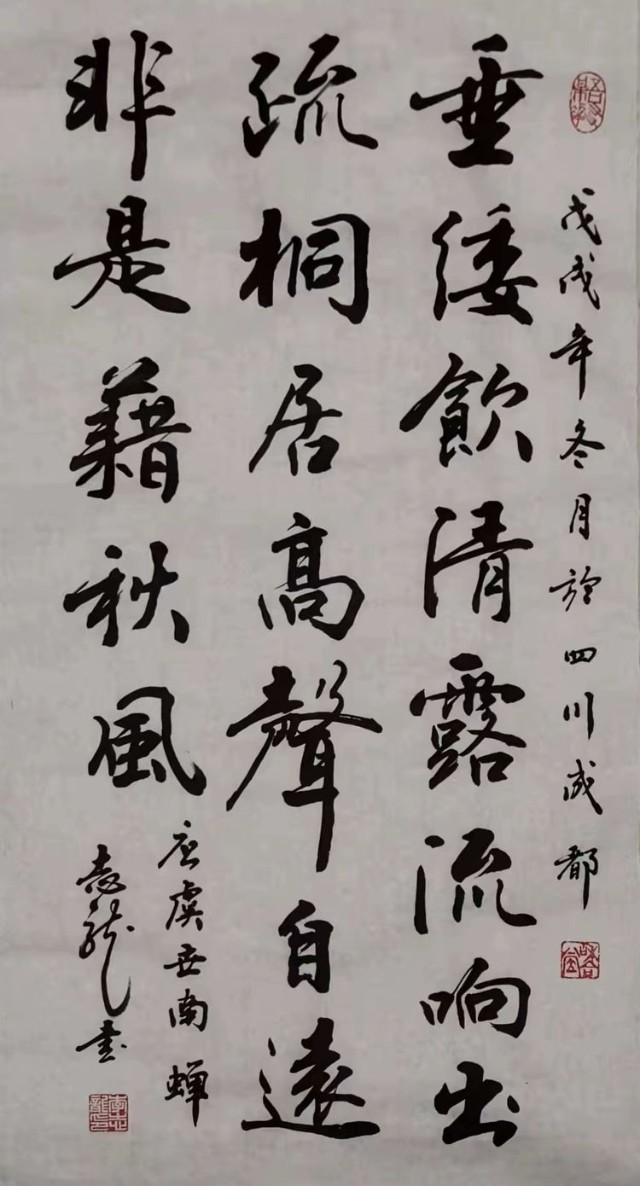 戊戌年冬月於四川成都
垂緌飲清露流响出
疏桐居高聲自遠
非是藉秋風
唐虞世南蝉
志龍书